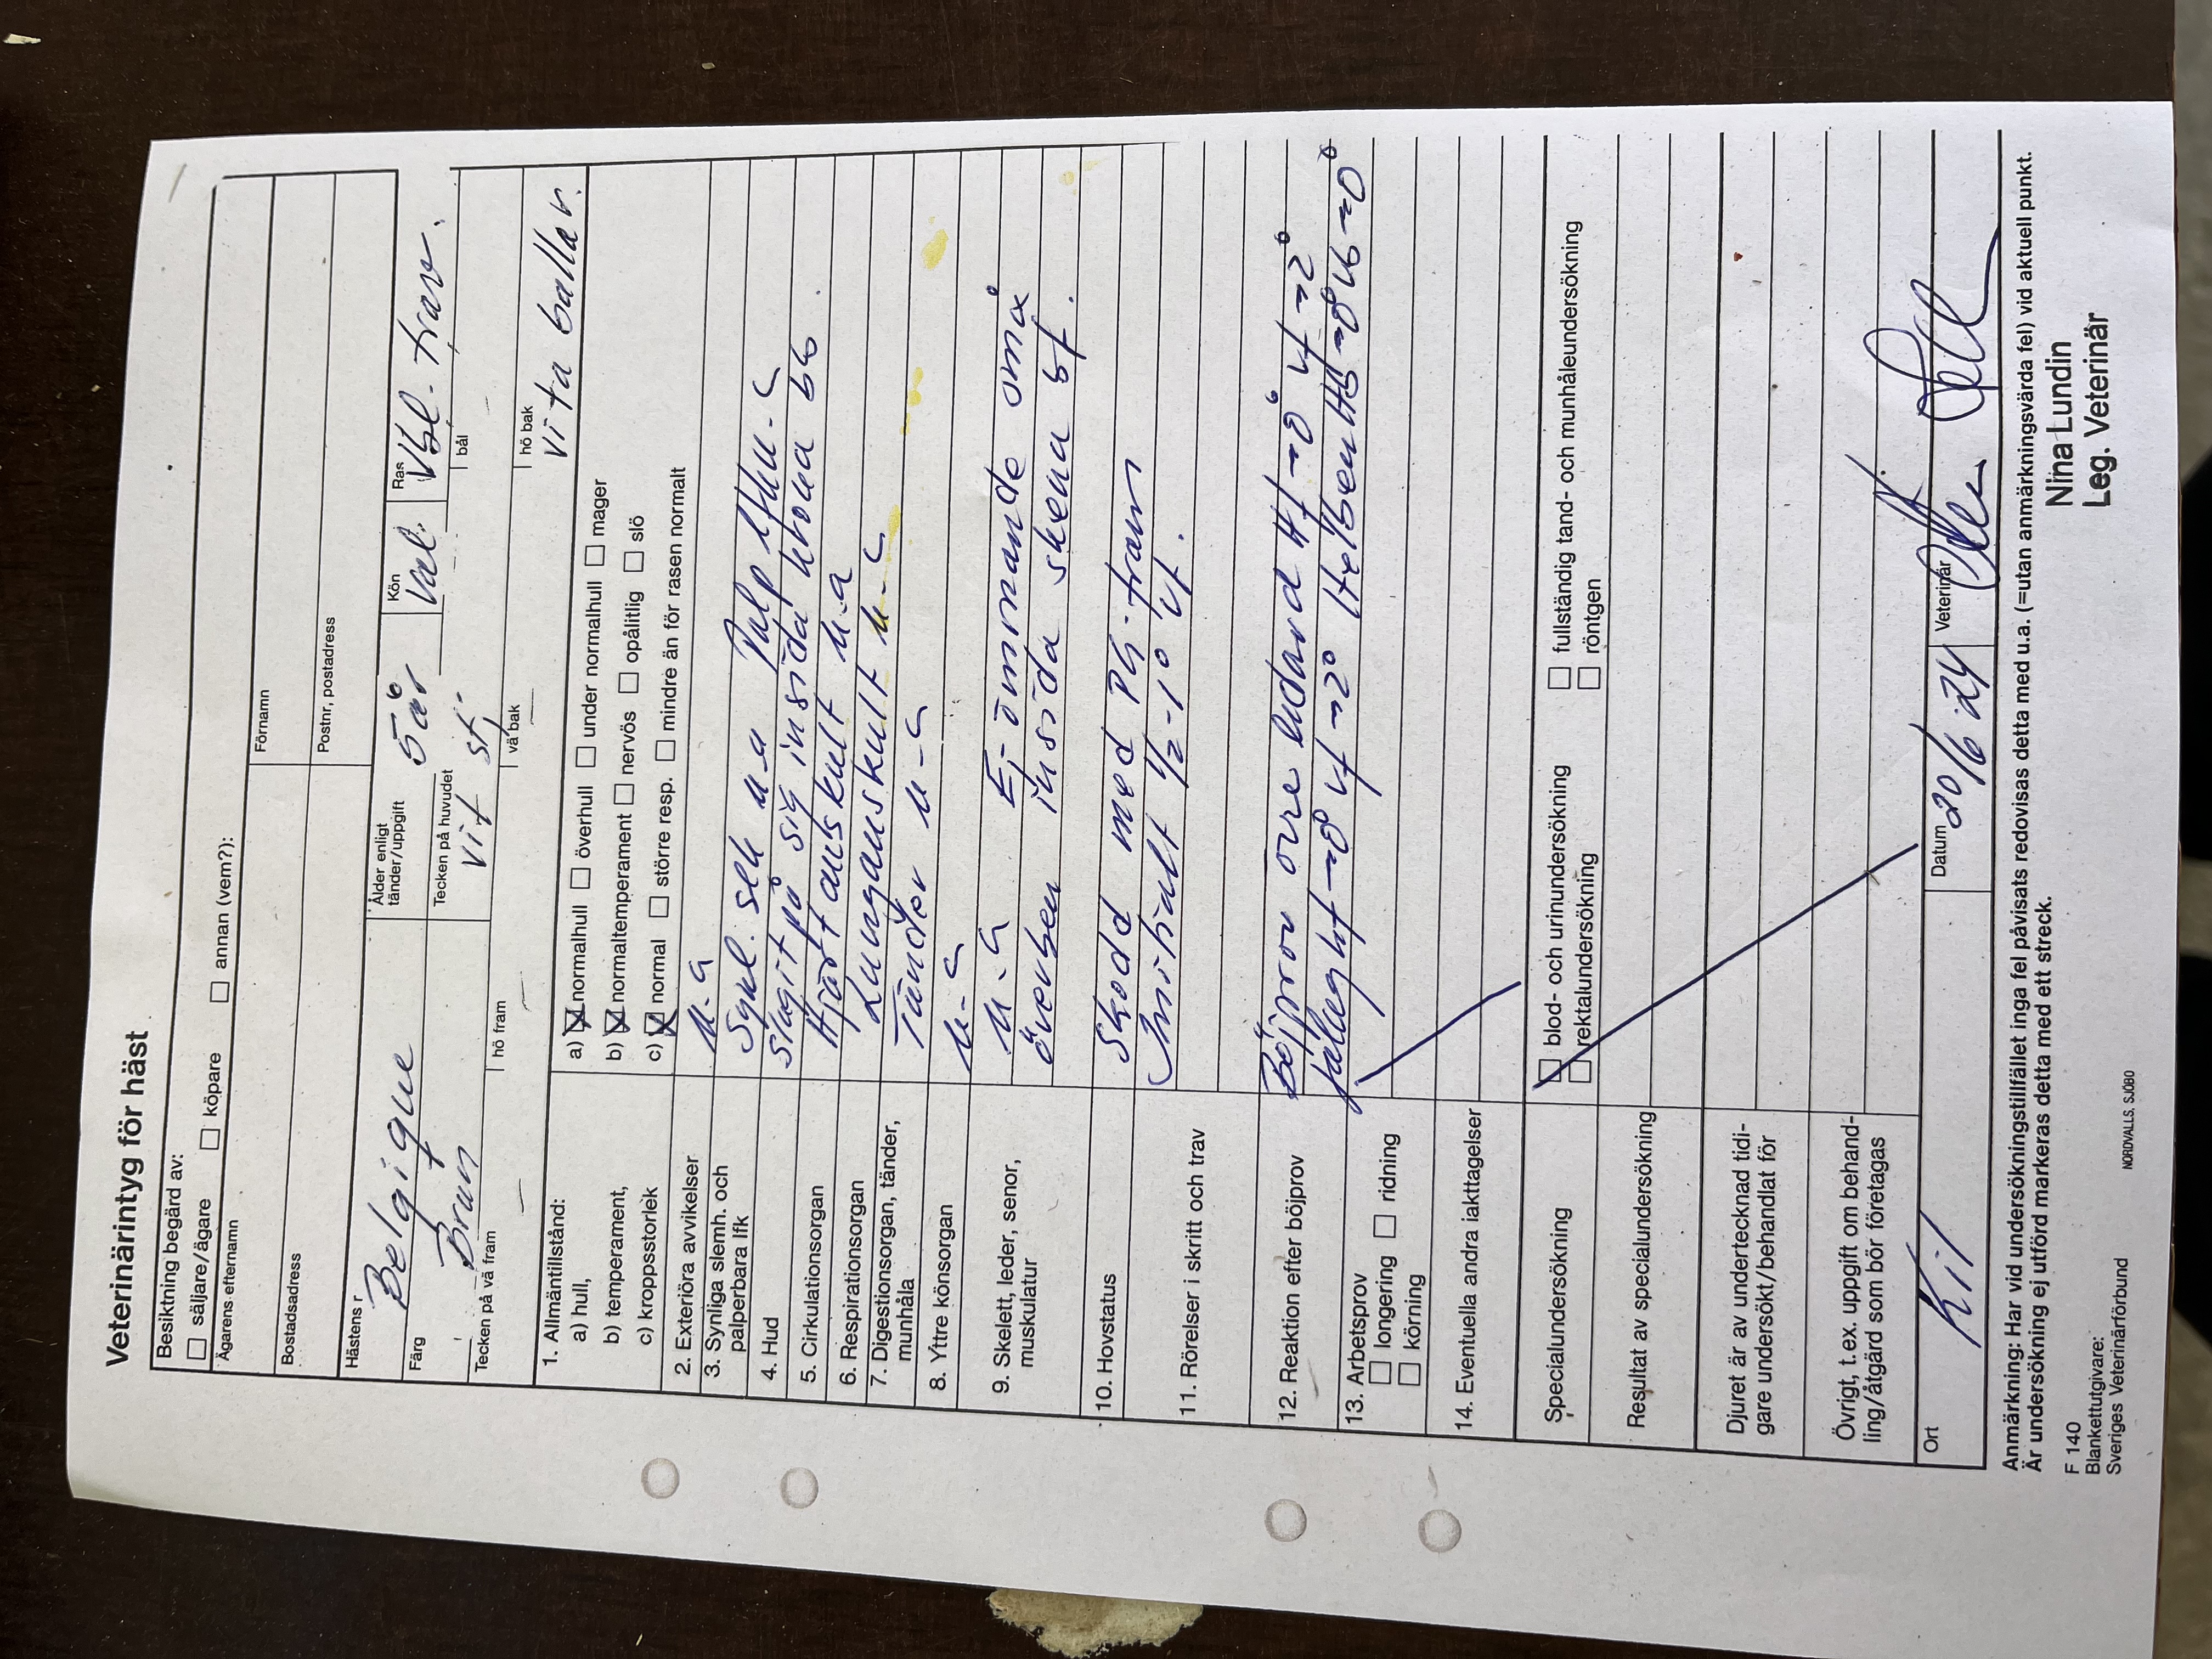 Veterinärintyg för häst
Besiktning begärd av:
säljare/ägare köpare annan (vem?):
Ägarens efternamn Förnamn
Bostadsadress Postnr, postadress
Hästens Ålder enligt tänder/uppgift Kön Ras
Belgique 5 år Val. Vbl. trav.
Färg Tecken på huvudet bål
Brun vit st.
Tecken på vä fram hö fram vä bak hö bak
vita ballar.
1. Allmäntillstånd:
a) hull, a) normalhull överhull under normalhull mager
b) temperament, b) normaltemperament nervös opålitlig slö
c) kroppsstorlek c) normal större resp. mindre än för rasen normalt
2. Exteriöra avvikelser u.a
3. Synliga slemh. och palperbara lfk Synl. slh u.a Palp lfku.a
4. Hud Slagit på sig insida krona bb
5. Cirkulationsorgan Hjärtauskult u.a
6. Respirationsorgan Lungauskult u.a
7. Digestionsorgan, tänder, munhåla Tänder u.a
8. Yttre könsorgan u.a
9. Skelett, leder, senor, muskulatur u.a Ej ömmande små
överben insida skena bf.
10. Hovstatus Skodd med på fram
11. Rörelser i skritt och trav Initialt 1/2-1° vf.
12. Reaktion efter böjprov Böjprov övre ledard Hf→0° vf→2°
13. Arbetsprov hf→0° vf→2° Helben Hb→0° Vb→0°
longering ridning
körning
14. Eventuella andra iakttagelser
Specialundersökning blod- och urinundersökning fullständig tand- och munhåleundersökning
rektalundersökning röntgen
Resultat av specialundersökning
Djuret är av undertecknad tidi-
gare undersökt/behandlat för
Övrigt, t.ex. uppgift om behand-
ling/åtgärd som bör företagas
Ort Datum Veterinär
Kil 20/6 -24
Anmärkning: Har vid undersökningstillfället inga fel påvisats redovisas detta med u.a. (=utan anmärkningsvärda fel) vid aktuell punkt.
Är undersökning ej utförd markeras detta med ett streck.
F 140
Blankettutgivare:
Sveriges Veterinärförbund
NORDVALLS, SJÖBO
Nina Lundin
Leg. Veterinär